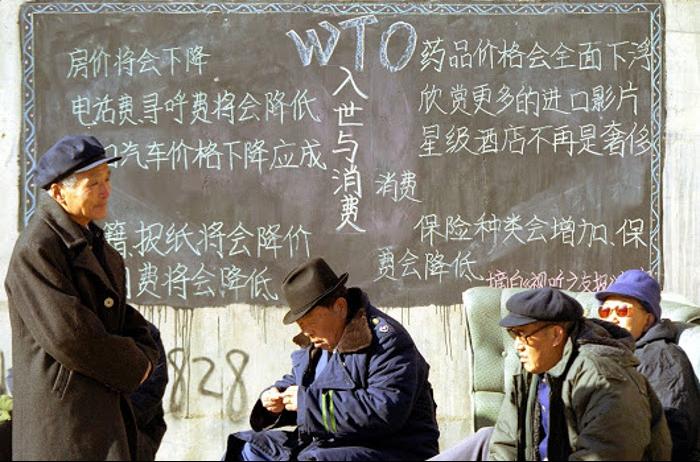 WTO
入世与消费
房价将会下降
电话费寻呼费将会降低
口汽车价格下降应成
籍报纸将会降价
费将会降低
药品价格会全面下浮
欣赏更多的进口影片
星级酒店不再是奢侈
消费
保险种类会增加、保
费会降低
摘自《视听之友报》
828